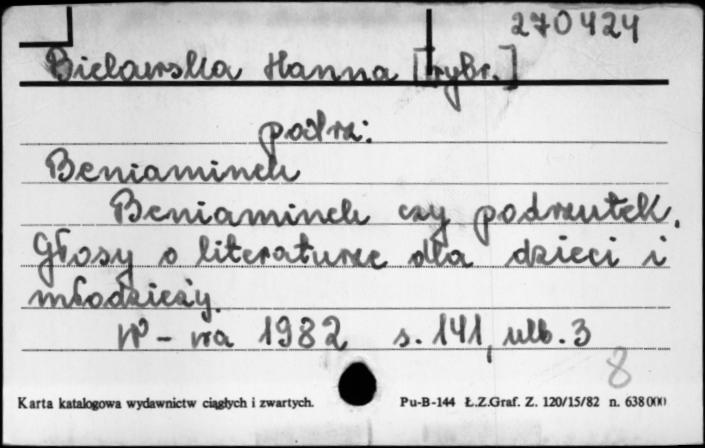 270424
Bielawska Hanna [wybr.]
podrz:
Beniaminek
Beniaminek czy podrzutek.
Głosy o literaturze dla dzieci i
młodzieży.
W-wa 1982 s. 141, nlb. 3
8
Karta katalogowa wydawnictw ciągłych i zwartych. Pu-B-144 Ł.Z.Graf. Z. 120/15/82 n. 638000